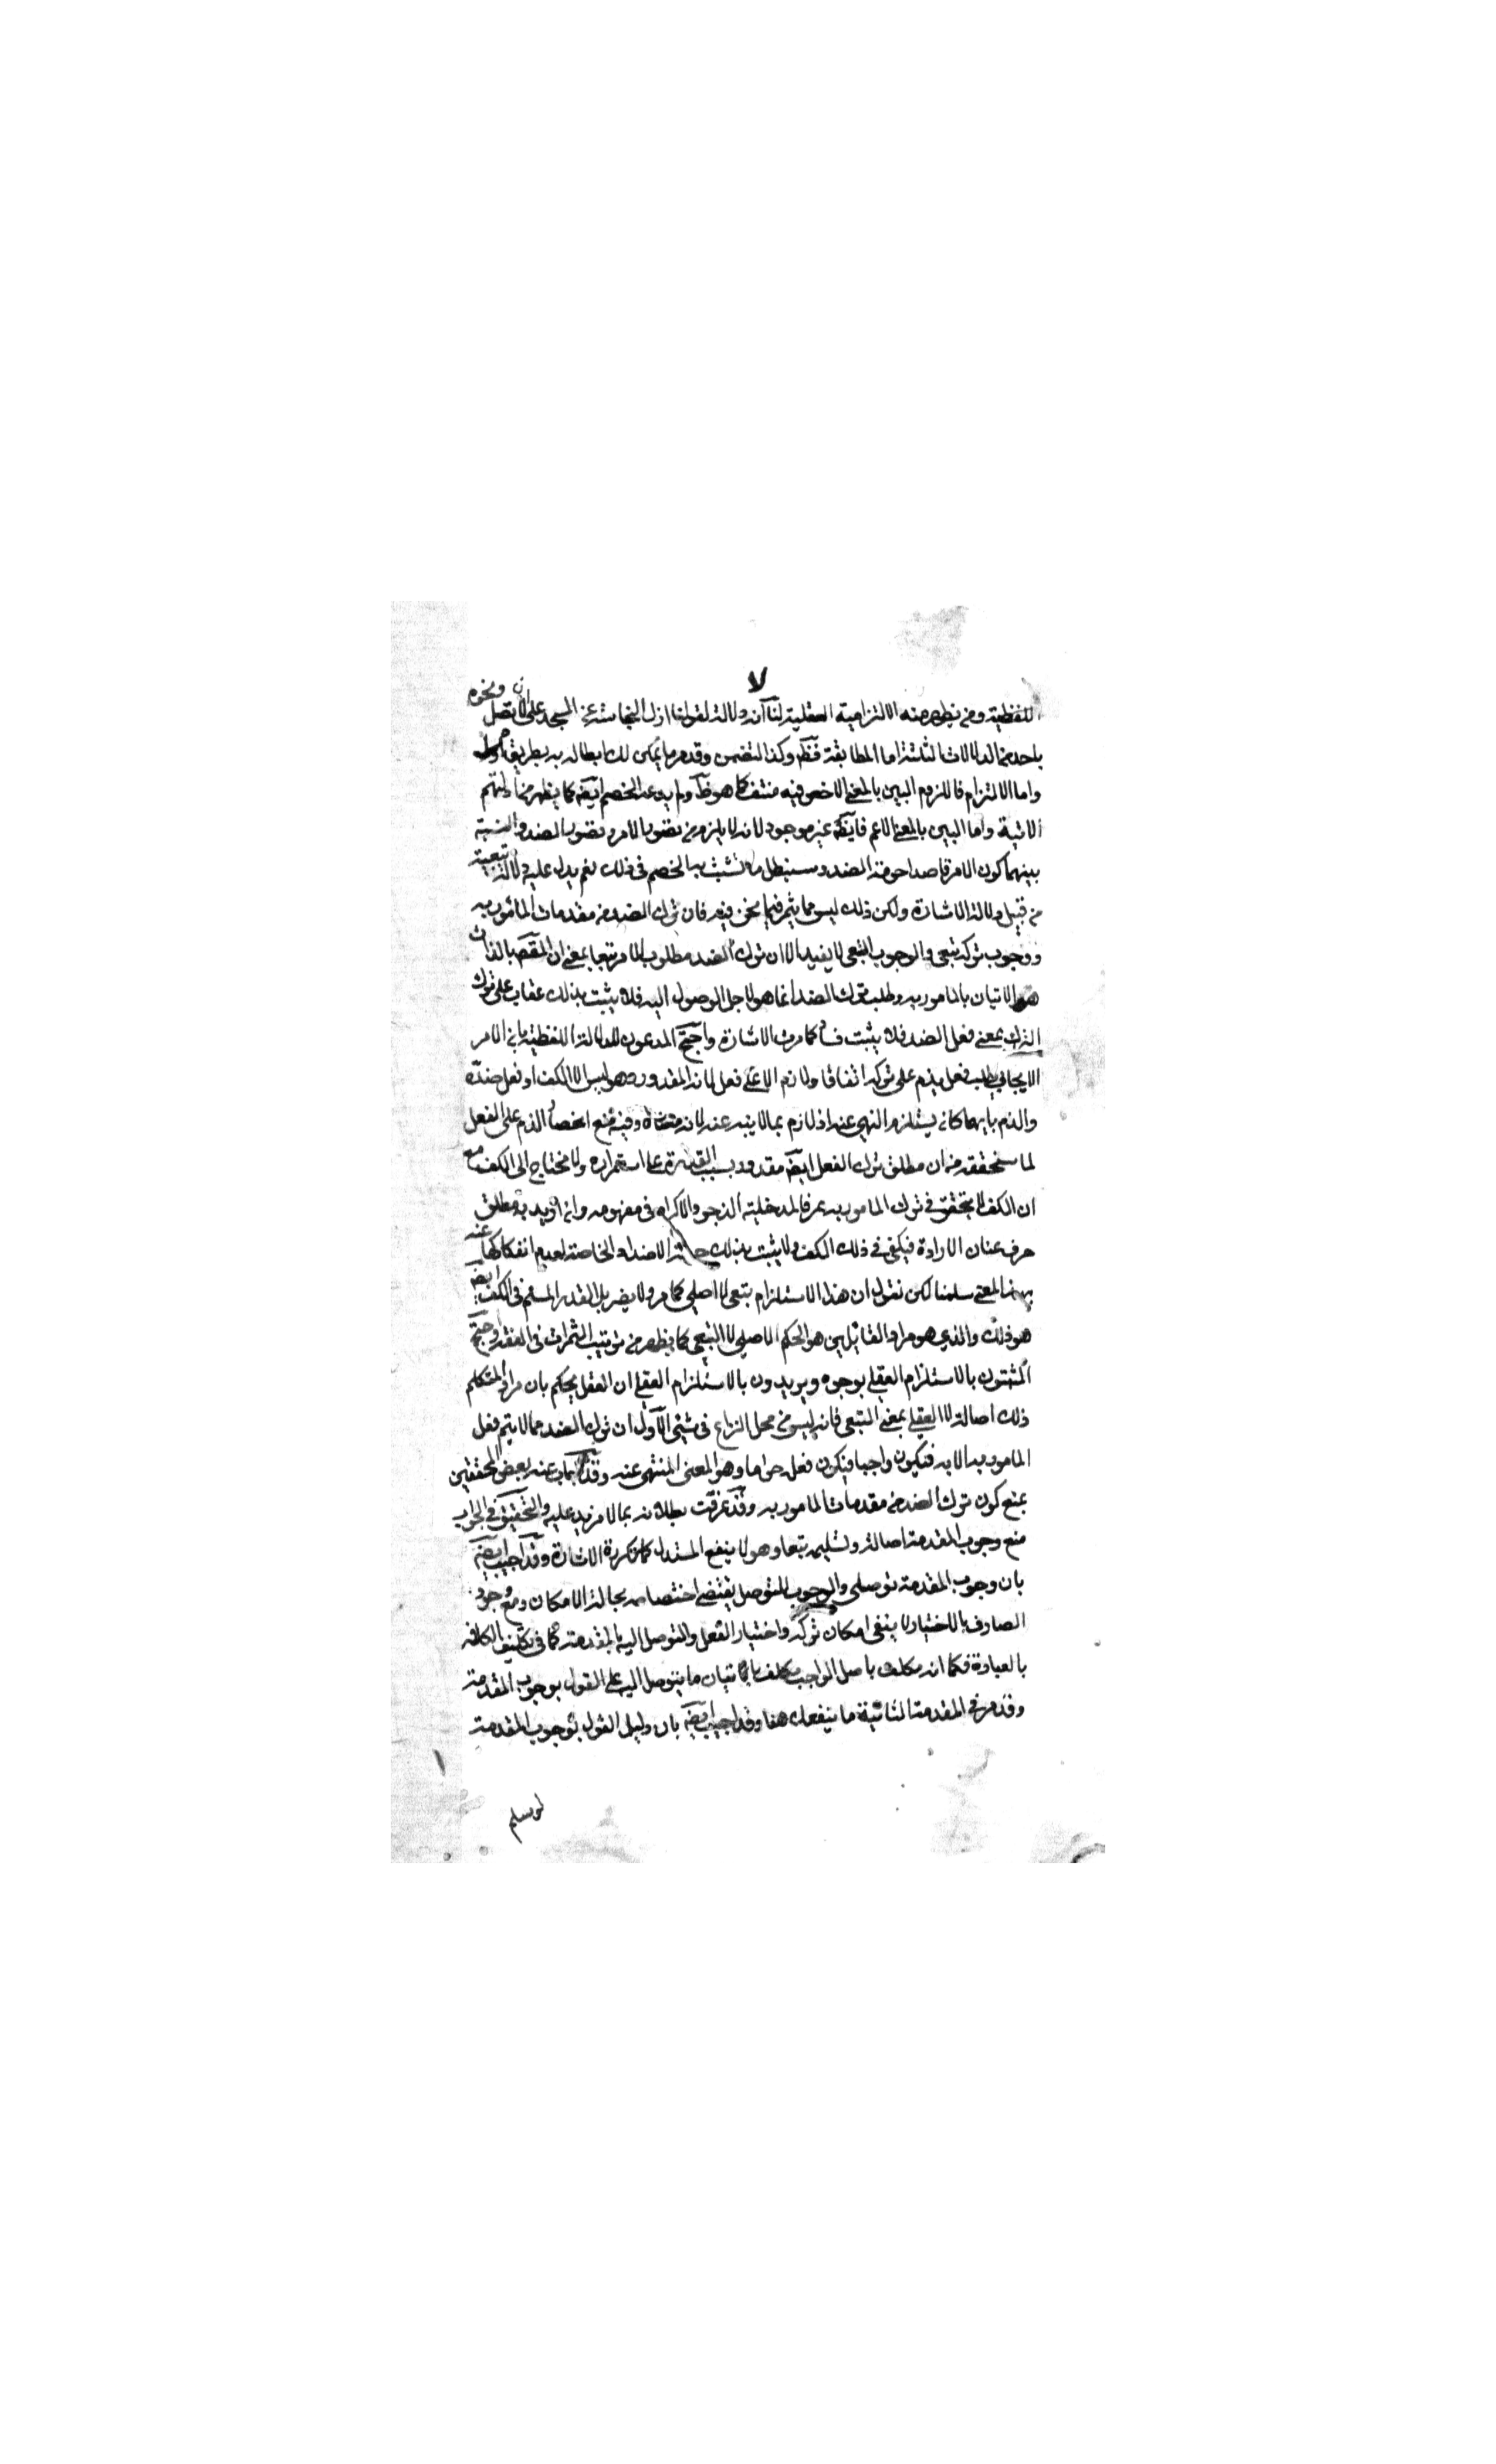 لا
اللفظية ومن يظهر منه الالتزامية العقلية لنا انه لا دلالة لقولنا ازل النجاسة عن المسجد على لا تصل ونحوه
باحد من الدلالات الثلث اما المطابقة فظم وكذا التضمن وقد مر ما يمكن لك ابطاله به بطريق
واما الالتزام فاللزوم البين بالمعنى الاخص فيه منتف كما هو ظ ولم يدعه الخصم ايضم كما يظهر من ادلتهم
الاتية واما البين بالمعنى الاعم فايضم غير موجود لانه لا يلزم من تصور الامر وتصور الضد والنسبة
بينهما كون الامر قاصدا حرمة الضد وسنبطل ما تشبث به الخصم في ذلك نعم يدل عليه دلالة تبعية
من قبيل دلالة الاشارة ولكن ذلك ليس مما يثمر فيما نحن فيه فان ترك الضد من مقدمات المأمور به
فوجوب تركه تبعي والوجوب التبعي لا يفيد الا ان ترك الضد مطلوب الامر تبعا بمعنى ان المقصم بالذات
هو الاتيان بالمامور به وطلب ترك الضد انما هو لاجل الوصول اليه فلا يثبت بذلك عقاب على ترك
الترك بمعنى فعل الضد فلا يثبت فساد كما مرت الاشارة واحتج المدعون للدلالة اللفظية بان الامر
الايجابي طلب فعل يذم على تركه اتفاقا ولا ذم الا على فعل لانه المقدور وهو ليس الا الكف او فعل ضده
والذم بايهما كان يستلزم النهي عنه اذ لا ذم بما لا ينه عنه لانه معناه وفيه منع انحصار الذم على الفعل
لما سنحققه من ان مطلق ترك الفعل ايضم مقدور بسبب القدرة على استمراره ولا نحتاج الى الكف مع
ان الكف لا يتحقق في ترك المامور به عرفا لمدخلية الزجر والاكراه في مفهومه وان اريد به مطلق
صرف عنان الارادة فيكفي في ذلك الكف ولا يثبت بذلك حرمة الاضداد الخاصة لعدم انفكاكها عنه
بهذا المعنى سلمنا لكن نقول ان هذا الاستلزام تبعي لا اصلي كما مر ولا يضر بل القدر المسلم في الكف ايضم
هو ذلك والذي هو مراد القائلين هو الحكم الاصلي لا التبعي كما يظهر من ترتيب الثمرات في الفقه واحتج
المثبتون بالاستلزام العقلي بوجوه ويريدون بالاستلزام العقلي ان العقل يحكم بان مراد المتكلم
ذلك اصالة لا العقلي بمعنى التبعي فانه ليس من محل النزاع في شئ الاول ان ترك الضد مما لا يتم فعل
المامور به الا به فيكون واجبا فيكون فعله حراما وهو المعنى المنهي عنه وقد اجاب عنه بعض المحققين
بمنع كون ترك الضد من مقدمات المامور به وقد عرفت بطلانه بما لا مزيد عليه والتحقيق في الجواب
منع وجوب المقدمة اصالة وتسليمه تبعا وهو لا ينفع المستدل كما تكررة الاشارة وقد اجيب ايضم
بان وجوب المقدمة توصلي والوجوب للتوصل يقتضي اختصاصه بحالة الامكان ومع وجود
الصارف بالاختيار لا ينفي امكان تركه واختيار الفعل والتوصل اليه بالمقدمة كما في تكليف الكافر
بالعبادة فكما انه مكلف باصل الواجب مكلف باتيان ما يتوصل اليه على القول بوجوب المقدمة
وقد مر في المقدمة الثانية ما ينفعك هنا وقد اجيب ايضم بان دليل القول بوجوب المقدمة
لو سلم